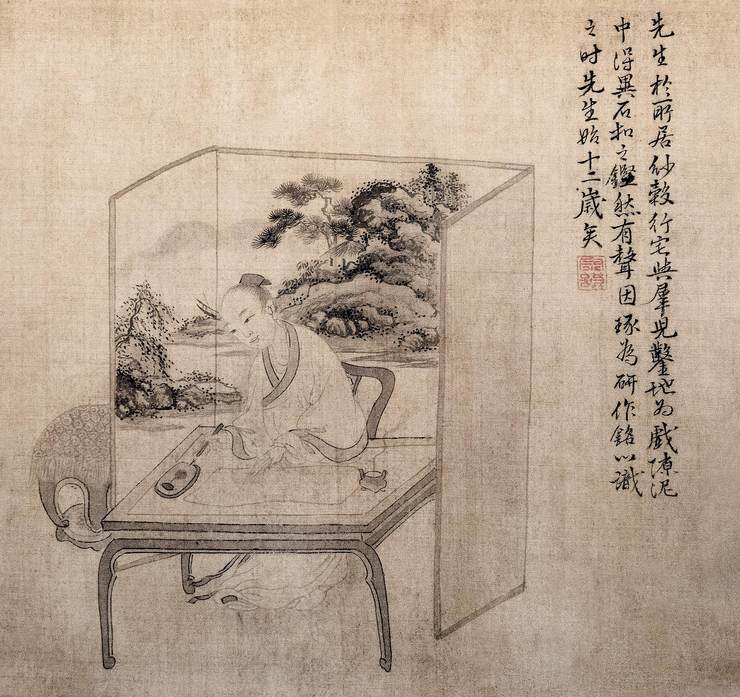 先生於所居紗縠行宅與羣兒鑿地为戲泥
中得異石扣之鏗然有聲因琢為研作銘以識
之时先生始十二歲矣